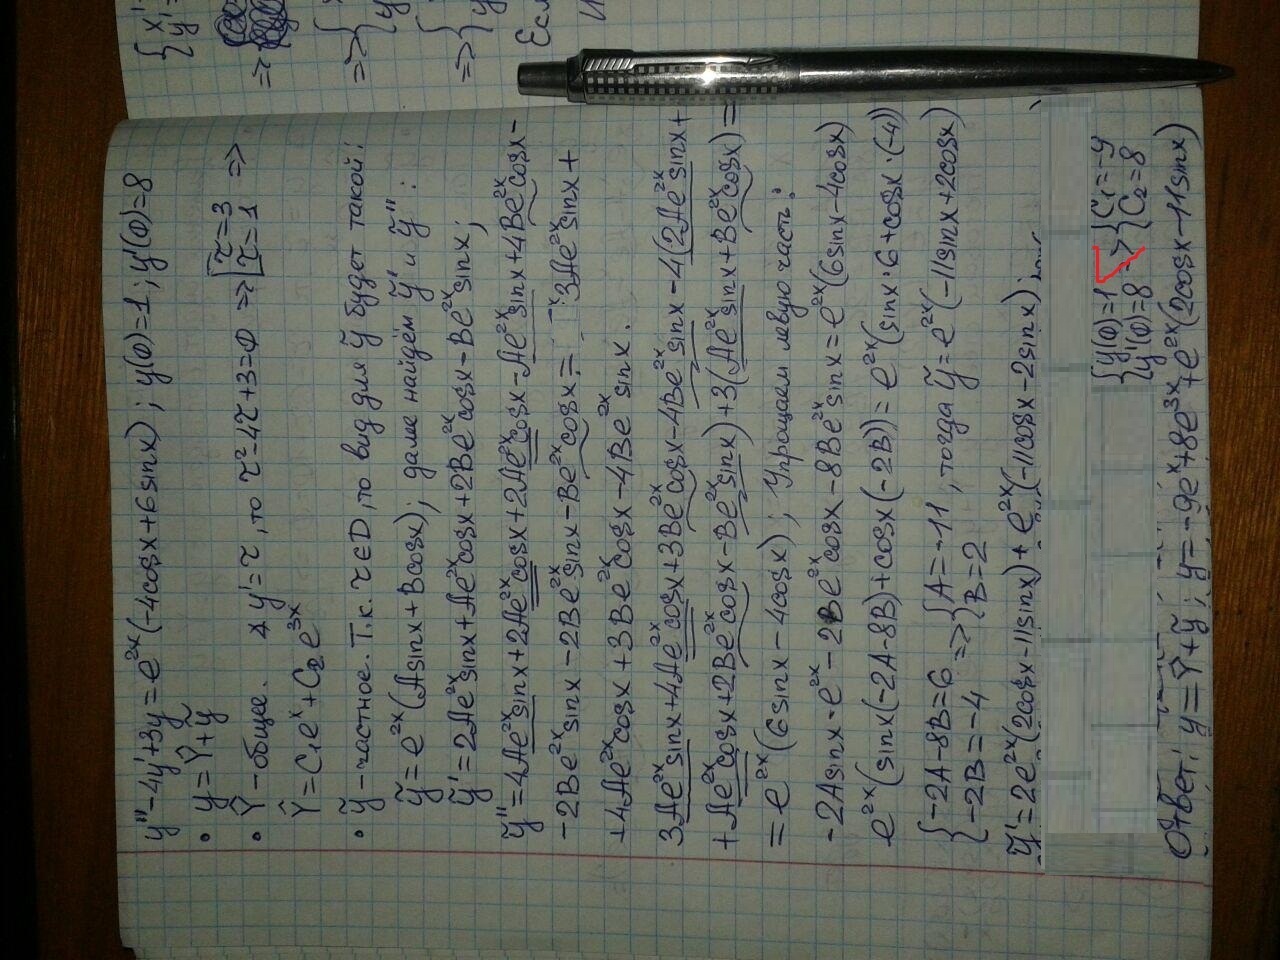 y''-4y'+3y=e^{2x}(-4cosx+6sinx); y(0)=1; y'(0)=8
• y=Ŷ+ỹ
• Ŷ-общее. ▸ y'=r, то r²-4r+3=0 => [r=3 r=1 =>
Ŷ=C₁e^x+C₂e^{3x}
• ỹ-частное. Т.к. r∈D, то вид для ỹ будет такой:
ỹ=e^{2x}(Asinx+Bcosx); далее найдём ỹ' и ỹ'':
ỹ'=2Ae^{2x}sinx+Ae^{2x}cosx+2Be^{2x}cosx-Be^{2x}sinx;
ỹ''=4Ae^{2x}sinx+2Ae^{2x}cosx+2Ae^{2x}cosx-Ae^{2x}sinx+4Be^{2x}cosx-
-2Be^{2x}sinx-2Be^{2x}sinx-Be^{2x}cosx= 3Ae^{2x}sinx+
+4Ae^{2x}cosx+3Be^{2x}cosx-4Be^{2x}sinx.
3Ae^{2x}sinx+4Ae^{2x}cosx+3Be^{2x}cosx-4Be^{2x}sinx-4(2Ae^{2x}sinx+
+Ae^{2x}cosx+2Be^{2x}cosx-Be^{2x}sinx)+3(Ae^{2x}sinx+Be^{2x}cosx)=
=e^{2x}(6sinx-4cosx); Упрощаем левую часть:
-2Asinx·e^{2x}-2Be^{2x}cosx-8Be^{2x}sinx=e^{2x}(6sinx-4cosx)
e^{2x}(sinx(-2A-8B)+cosx(-2B))=e^{2x}(sinx·6+cosx·(-4))
{-2A-8B=6 => {A=-11, тогда ỹ=e^{2x}(-11sinx+2cosx)
{-2B=-4 {B=2
ỹ'=2e^{2x}(2cosx-11sinx)+e^{2x}(-11cosx-2sinx);
{y(0)=1 => {C₁=-9
{y'(0)=8 {C₂=8
Ответ: y=Ŷ+ỹ; y=-9e^x+8e^{3x}+e^{2x}(2cosx-11sinx)
=> {
=> {
Есл